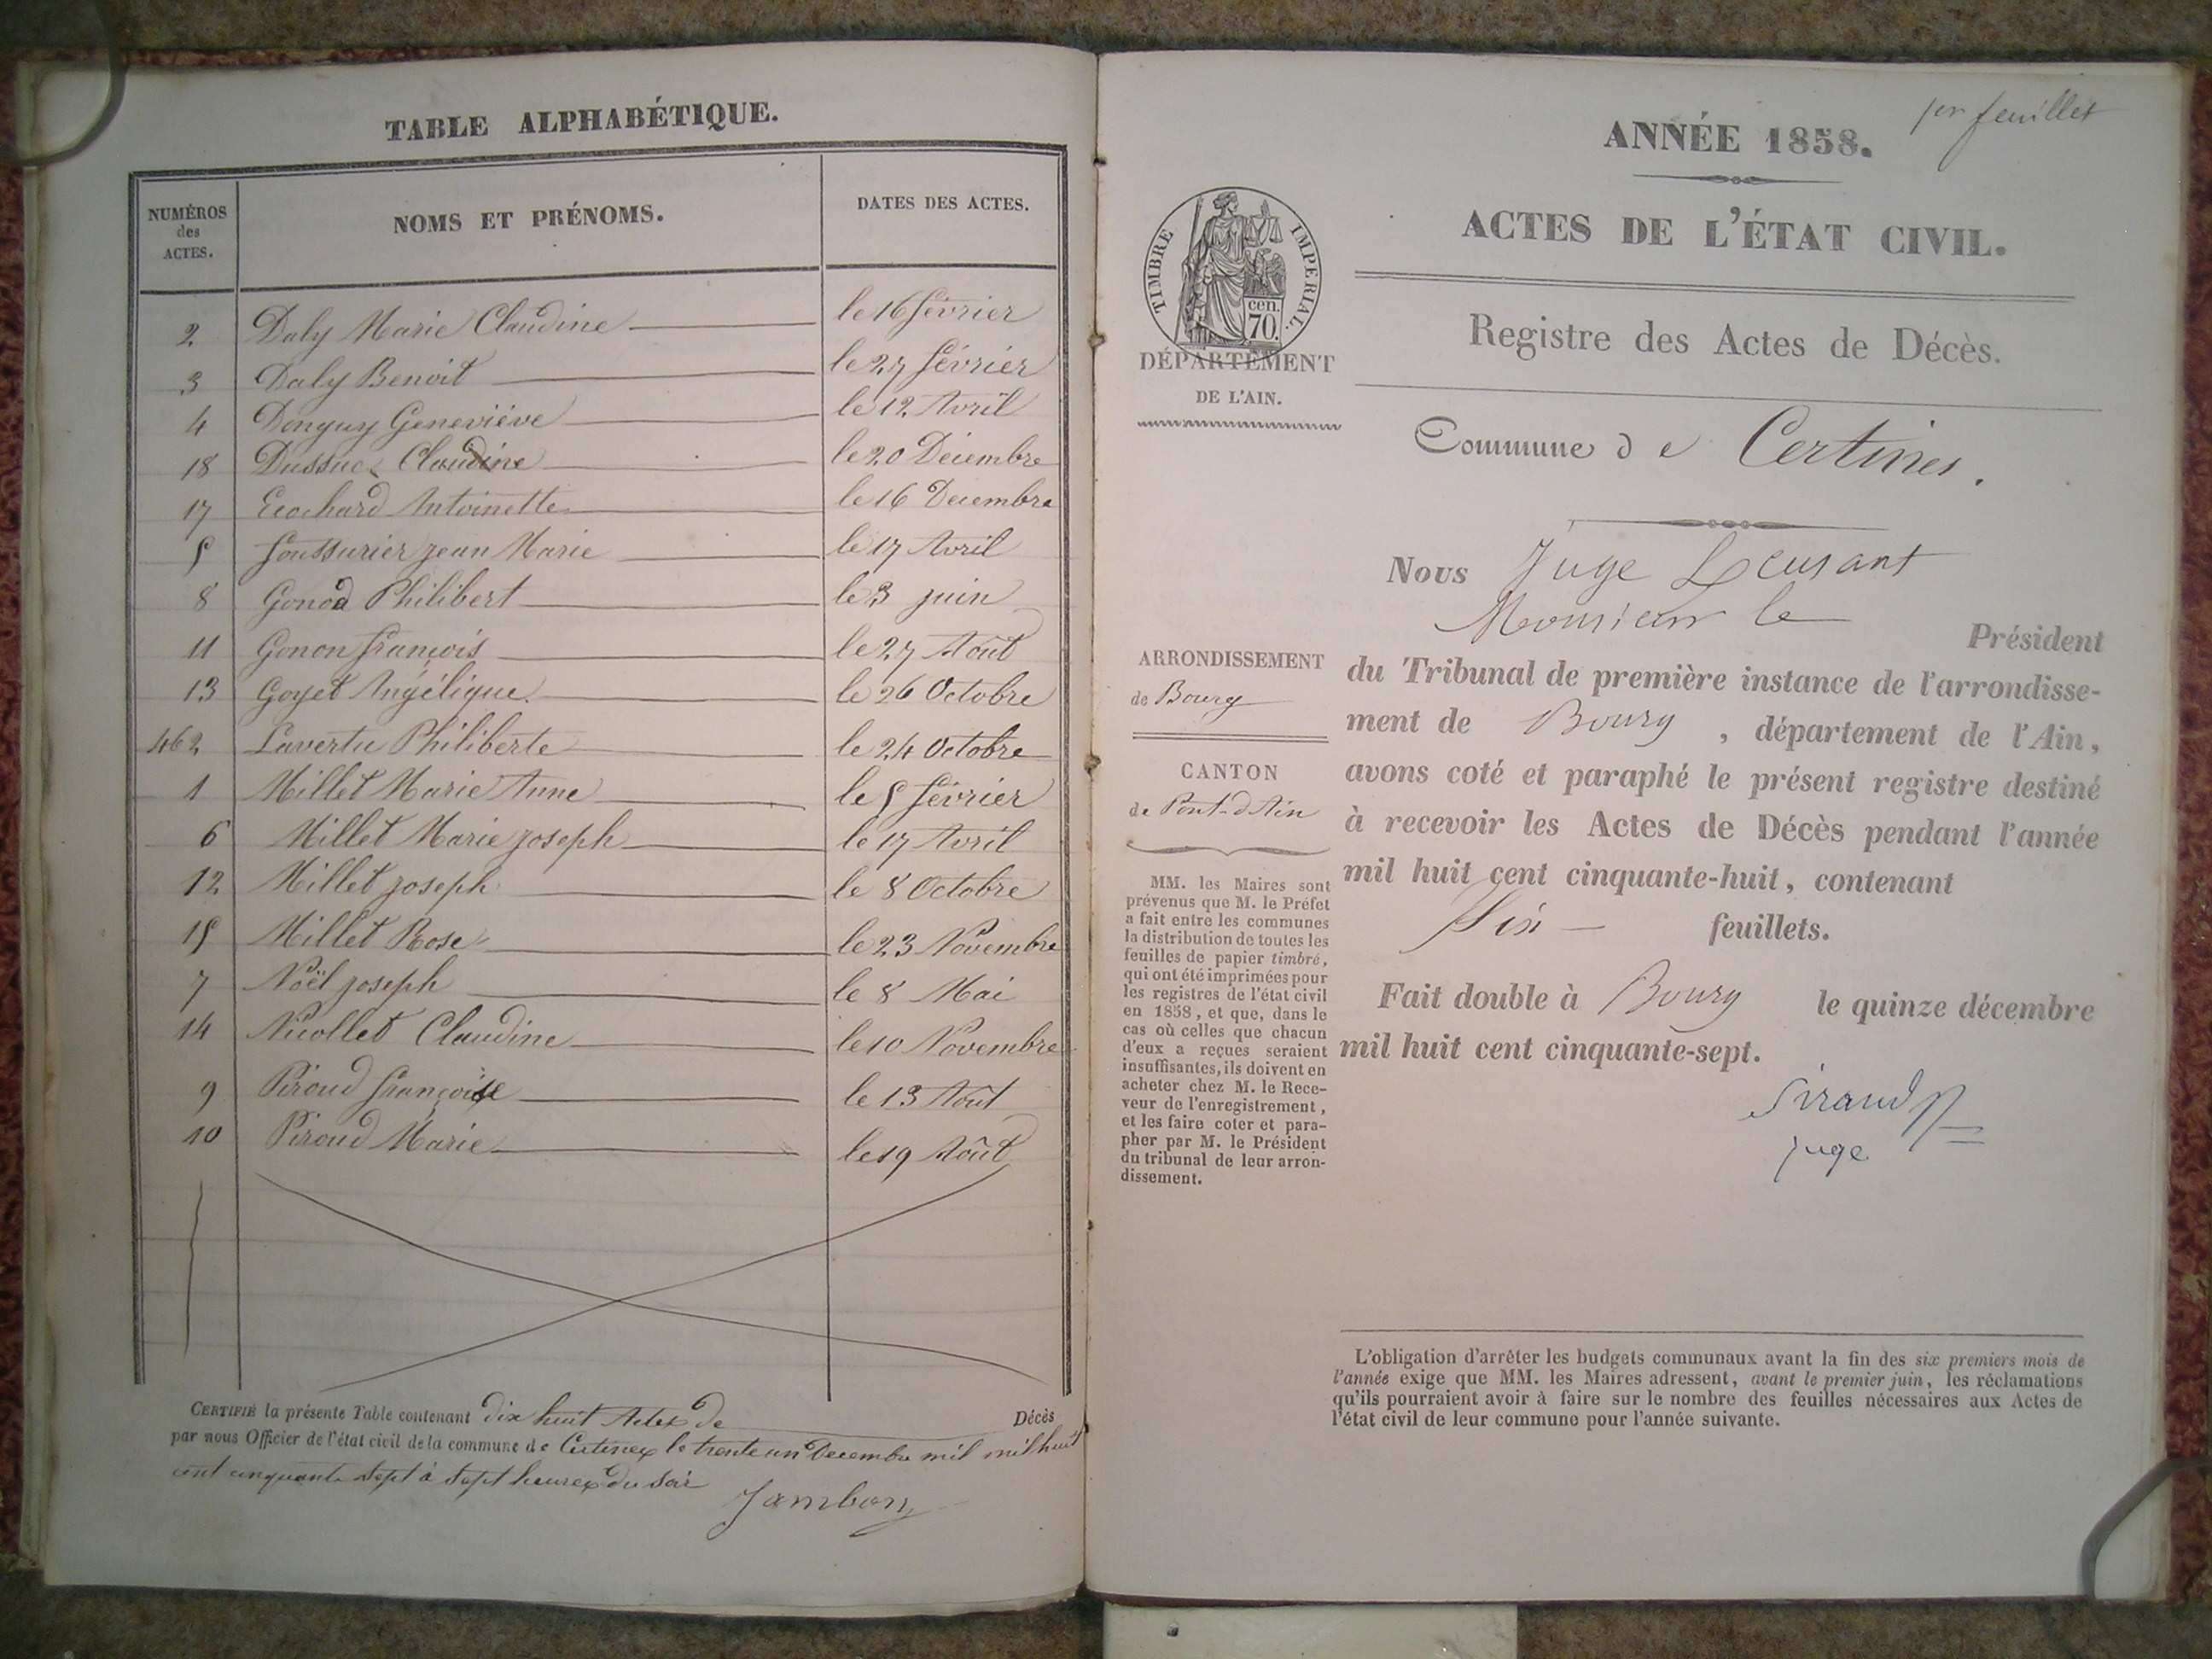 TABLE ALPHABÉTIQUE.
NUMÉROS des ACTES. NOMS ET PRÉNOMS. DATES DES ACTES.
2 Daly Marie Claudine le 16 février
3 Daly Benoit le 27 février
4 Donguy Geneviève le 12 Avril
18 Dussuc Claudine le 20 Décembre
17 Ecochard Antoinette le 16 Decembre
5 foussurier jean Marie le 17 Avril
8 Gonod Philibert le 3 juin
11 Gonon françois le 27 Août
13 Goyet Angélique le 26 Octobre
Lavertu Philiberte le 24 Octobre
1 Millet Marie Anne le 5 février
6 Millet Marie joseph le 17 Avril
12 Millet joseph le 8 Octobre
15 Millet Rose le 23 Novembre
7 Noël joseph le 8 Mai
14 Nicollet Claudine le 10 Novembre
9 Piroud françoise le 13 Août
10 Piroud Marie le 19 Août
CERTIFIÉ la présente Table contenant dix huit Actes de Décès
par nous Officier de l'état civil de la commune de Certines le trente un Decembre mil mil huit
cent cinquante sept à sept heures du soir
Jambon
1er feuillet
ANNÉE 1858.
ACTES DE L'ÉTAT CIVIL.
TIMBRE IMPERIAL.
cen.
70.
DÉPARTEMENT
DE L'AIN.
Registre des Actes de Décès.
Commune de Certines.
Nous Juge
Monsieur le
Président
du Tribunal de première instance de l'arrondisse-
ment de Bourg, département de l'Ain,
avons coté et paraphé le présent registre destiné
à recevoir les Actes de Décès pendant l'année
mil huit cent cinquante-huit, contenant
Six feuillets.
Fait double à Bourg le quinze décembre
mil huit cent cinquante-sept.
Sirand
juge
ARRONDISSEMENT
de Bourg
CANTON
de Pont-d'Ain
MM. les Maires sont
prévenus que M. le Préfet
a fait entre les communes
la distribution de toutes les
feuilles de papier timbré,
qui ont été imprimées pour
les registres de l'état civil
en 1858, et que, dans le
cas où celles que chacun
d'eux a reçues seraient
insuffisantes, ils doivent en
acheter chez M. le Rece-
veur de l'enregistrement,
et les faire coter et para-
pher par M. le Président
du tribunal de leur arron-
dissement.
L'obligation d'arrêter les budgets communaux avant la fin des six premiers mois de
l'année exige que MM. les Maires adressent, avant le premier juin, les réclamations
qu'ils pourraient avoir à faire sur le nombre des feuilles nécessaires aux Actes de
l'état civil de leur commune pour l'année suivante.